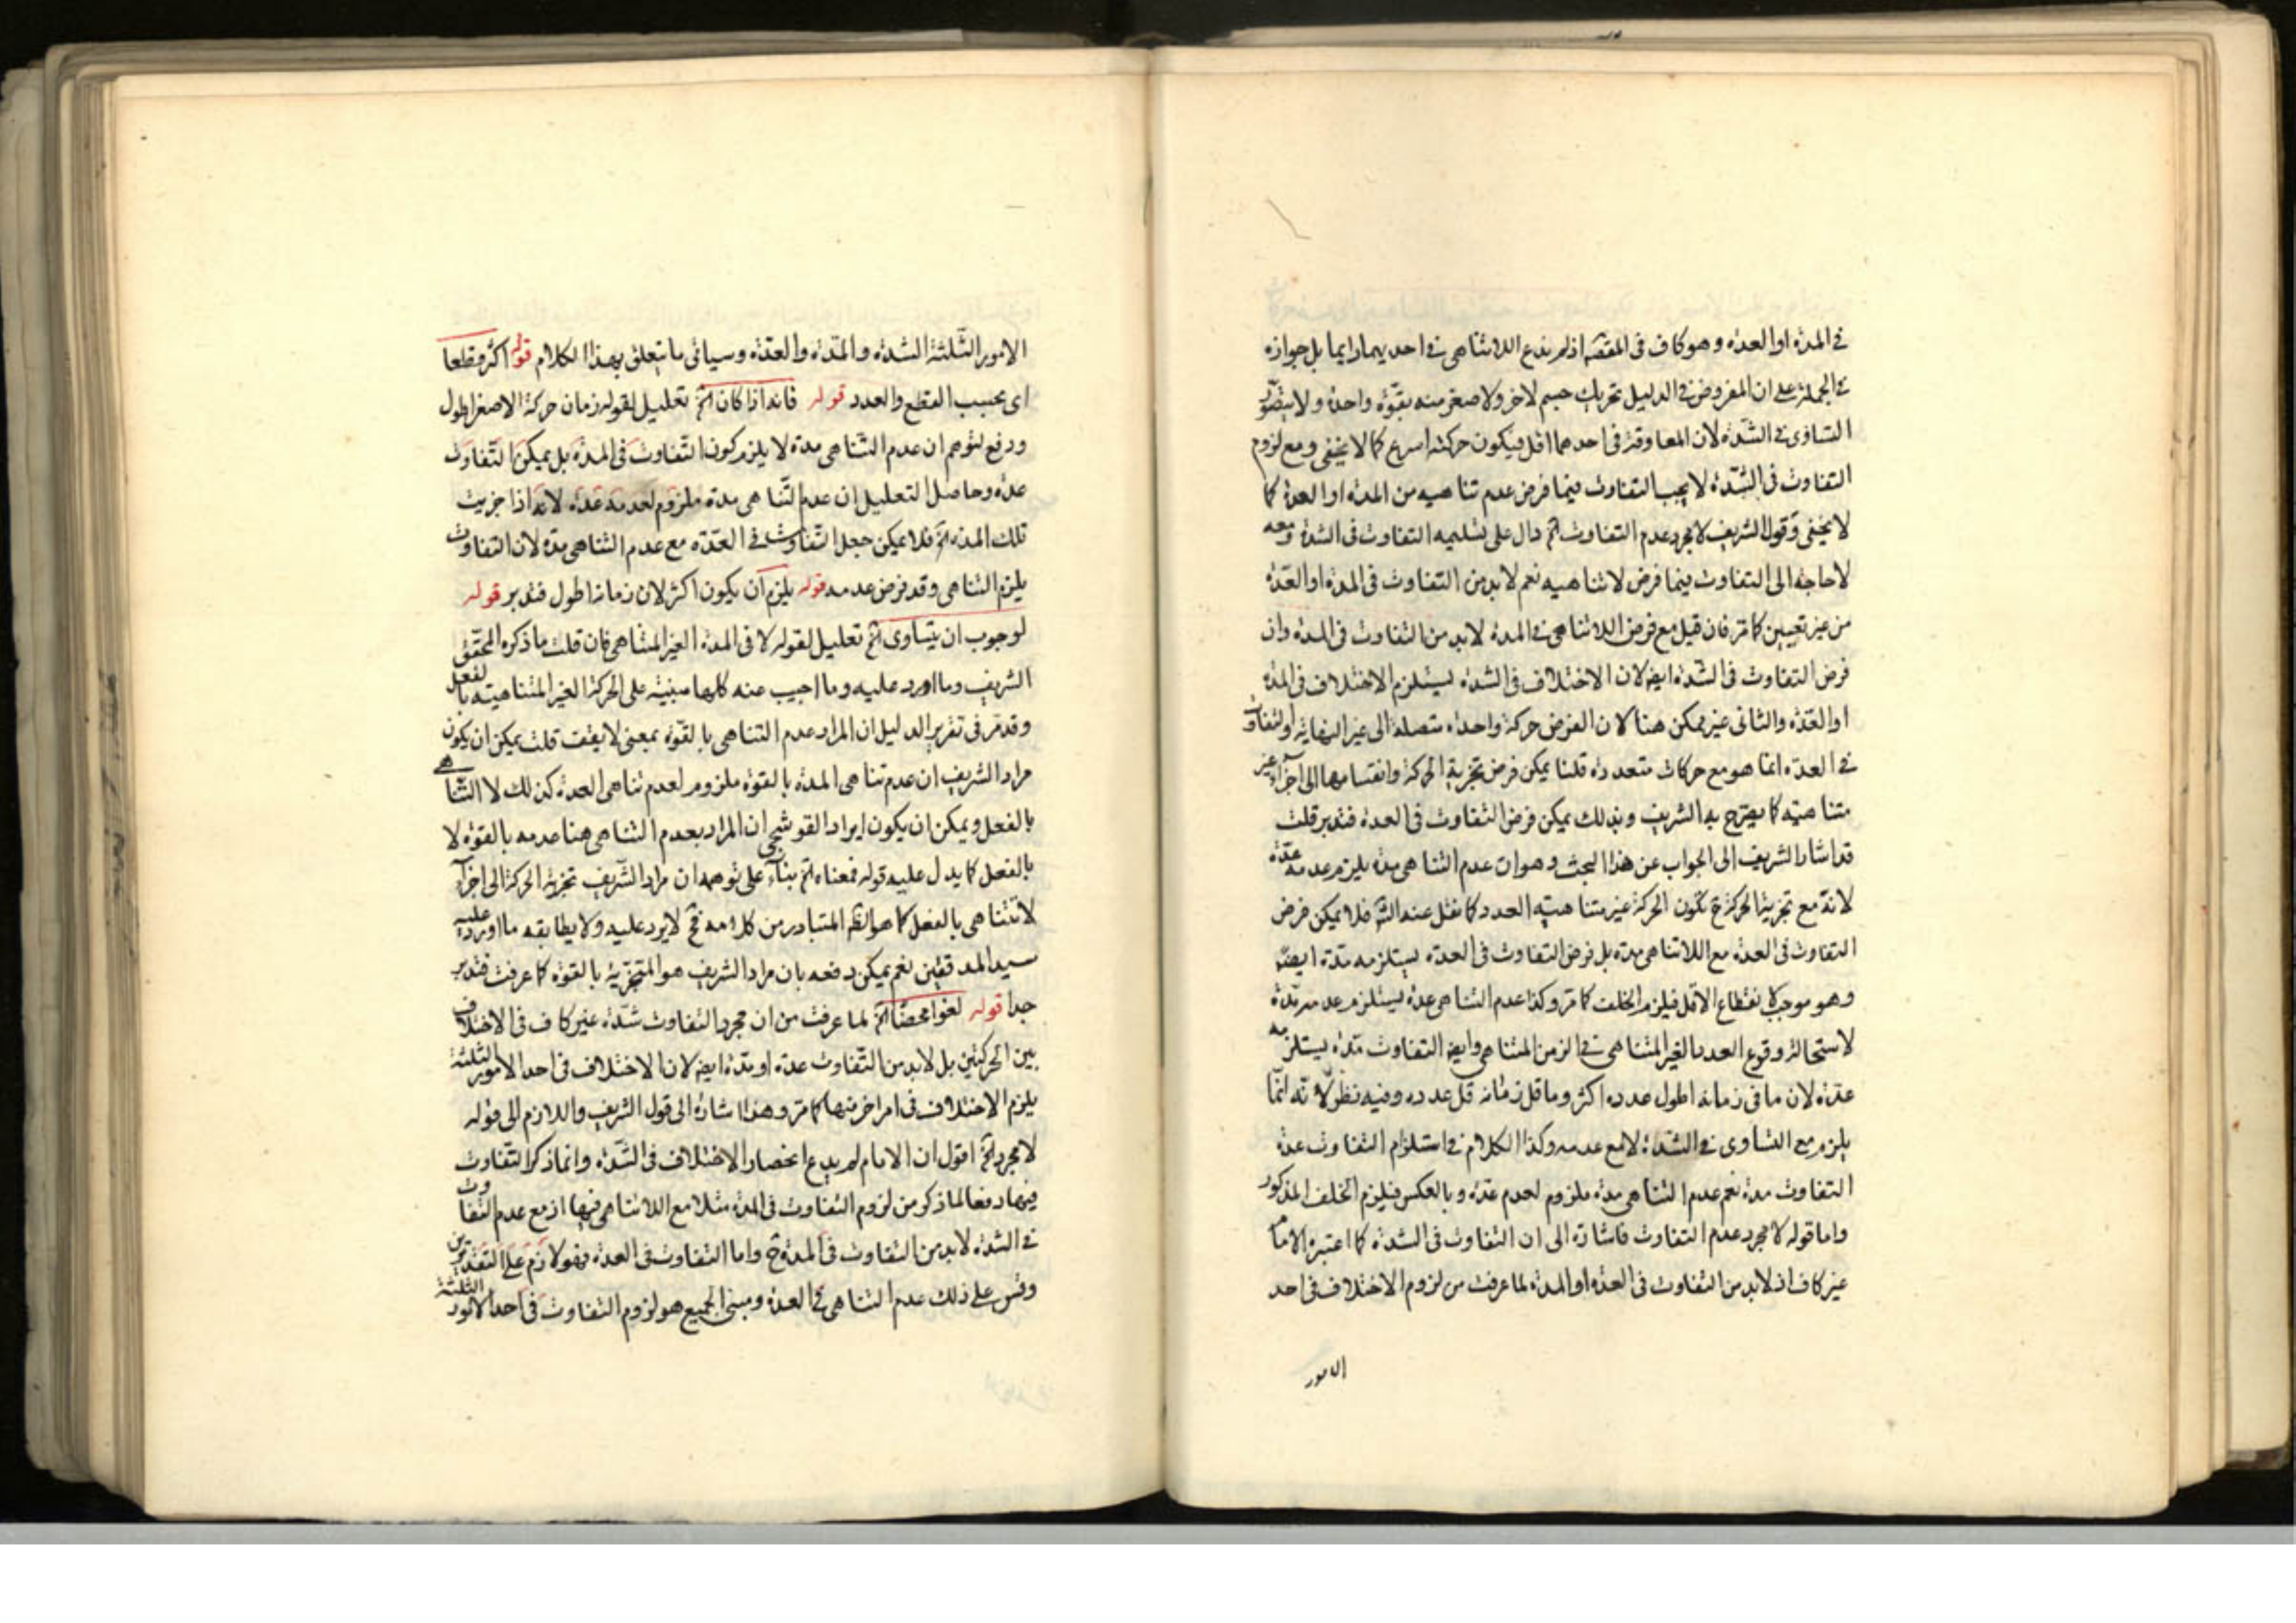 في المدة او العدة وهو كاف في المقصد اذ لم يدع اللاتناهي في احديهما دايما بل جوازه
في الجملة على ان المفروض في الدليل تحريك جسم لاخر ولاصغر منه بقوة واحدة ولا يتصور
التساوى في الشدة لان المعاوقة في احدهما اقل فيكون حركته اسرع كما لا يخفى ومع لزوم
التفاوت في الشدة لا يجب التفاوت فيما فرض عدم تناهيه من المدة او العدة كما
لا يخفى وقول الشريف لا مجرد عدم التفاوت الخ دال على تسليمه التفاوت في الشدة ومعه
لا حاجة الى التفاوت فيما فرض لا تناهيه نعم لا بد من التفاوت في المدة او العدة
من غير تعيين كما مر فان قيل مع فرض اللاتناهي في المدة لا بد من التفاوت في المدة وان
فرض التفاوت في الشدة ايضا لان الاختلاف في الشدة يستلزم الاختلاف في المدة
او العدة والثاني غير ممكن هنا لان الفرض حركة واحدة متصلة الى غير النهاية والتفاوت
في العدة انما هو مع حركات متعددة قلنا يمكن فرض تجزية الحركة وانقسامها الى اجزاء غير
متناهية كما يصرح به الشريف وبذلك يمكن فرض التفاوت في العدة فتدبر قلت
قد اشار الشريف الى الجواب عن هذا البحث وهو ان عدم التناهي مدة يلزم عدمه عدة
لانه مع تجزية الحركة ح تكون الحركة غير متناهية العدد كما نقل عنه الش فلا يمكن فرض
التفاوت في العدة مع اللاتناهي مدة بل فرض التفاوت في العدة يستلزمه مدة ايضا
وهو موجب لانقطاع الاقل فيلزم الخلف كما مر وكذا عدم التناهي عدة يستلزم عدمه مدة
لاستحالة وقوع العدد الغير المتناهي في الزمن المتناهي وايضا التفاوت مدة يستلزمه
عدة لان ما في زمانه اطول عدده اكثر وما قل زمانه قل عدده وفيه نظر لانه انما
يلزم مع التساوى في الشدة لا مع عدمه وكذا الكلام في استلزام التفاوت عدة
التفاوت مدة نعم عدم التناهي مدة ملزوم لعدم عدة وبالعكس فيلزم الخلف المذكور
واما قوله لا مجرد عدم التفاوت فاشارة الى ان التفاوت في الشدة كما اعتبره الامام
غير كاف اذ لا بد من التفاوت في العدة او المدة لما عرفت من لزوم الاختلاف في احد
الامور
الامور الثلثة الشدة والمدة والعدة وسيأتي ما يتعلق بهذا الكلام قوله اكثر وقطعا
اى بحسب القطع والعدد قوله فانه اذا كان الخ تعليل لقوله زمان حركة الاصغر اطول
ودفع لتوهم ان عدم التناهي مدة لا يلزم كون التفاوت في المدة بل يمكن التفاوت
عدة وحاصل التعليل ان عدم التناهي مدة ملزوم لعدمه عدة لانه اذا جزيت
تلك المدة الخ فلا يمكن جعل التفاوت في العدة مع عدم التناهي مدة لان التفاوت
يلزم التناهي وقد فرض عدمه قوله يلزم ان يكون اكثر لان زمانه اطول فتدبر قوله
لوجوب ان يتساوى الخ تعليل لقوله لا في المدة الغير المتناهي فان قلت ما ذكره المحقق
الشريف وما اورد عليه وما اجيب عنه كلها مبنية على الحركة الغير المتناهية بالفعل
وقد مر في تقرير الدليل ان المراد عدم التناهي بالقوة بمعنى لا يقف قلت يمكن ان يكون
مراد الشريف ان عدم تناهي المدة بالقوة ملزوم لعدم تناهي العدة كذلك لا التناهي
بالفعل ويمكن ان يكون ايراد القوشجي ان المراد بعدم التناهي هنا عدمه بالقوة لا
بالفعل كما يدل عليه قوله فمعناه الخ بناء على توهمه ان مراد الشريف تجزية الحركة الى اجزاء
لا تتناهي بالفعل كما هو الظ المتبادر من كلامه فح لا يرد عليه ولا يطابقه ما اورده عليه
سيد المدققين نعم يمكن دفعه بان مراد الشريف هو التجزية بالقوة كما عرفت فتدبر
جدا قوله لغوا محضا الخ لما عرفت من ان مجرد التفاوت شدة غير كاف في الاختلاف
بين الحركتين بل لا بد من التفاوت عدة او مدة ايضا لان الاختلاف في احد الامور الثلثة
يلزم الاختلاف في امر اخر منها كما مر وهذا اشارة الى قول الشريف واللازم الى قوله
لا مجرد الخ اقول ان الامام لم يدع انحصار الاختلاف في الشدة وانما ذكر التفاوت
فيها دفعا لما ذكر من لزوم التفاوت في المدة مثلا مع اللاتناهي فيها اذ مع عدم التفاوت
في الشدة لا بد من التفاوت في المدة ح واما التفاوت في العدة فهو لازم على التقديرين
وقس على ذلك عدم التناهي في العدة ومبنى الجميع هو لزوم التفاوت في احد الامور الثلثة